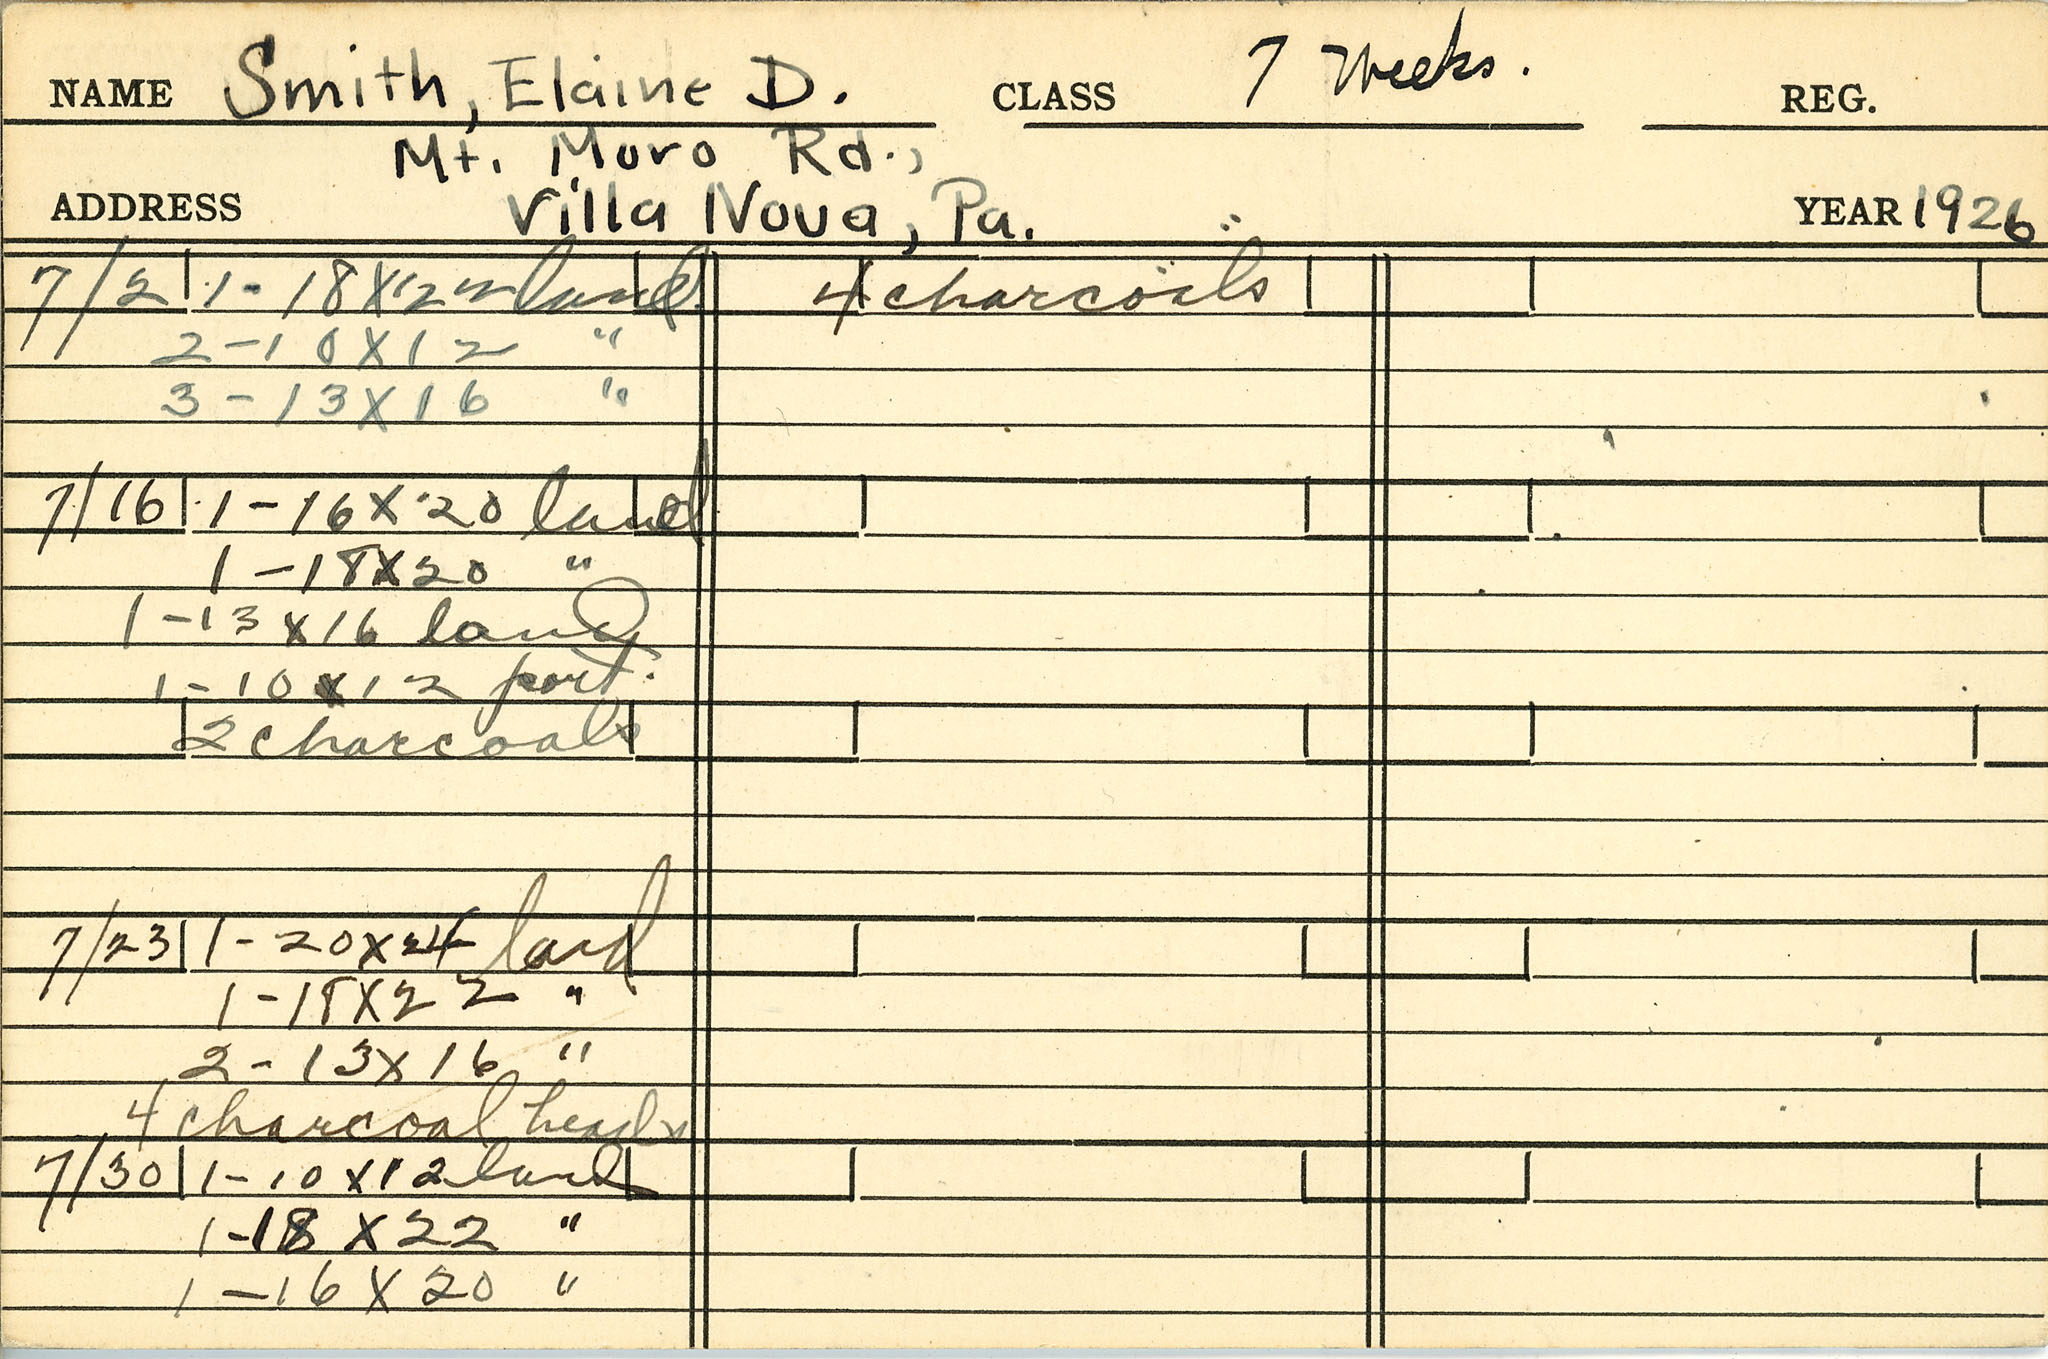 NAME Smith, Elaine D. CLASS 7 Weeks. REG.
Mt. Moro Rd.,
ADDRESS Villa Nova, Pa. YEAR 1926
7/2 1 - 18 X 22 land. 4 charcoals
2 - 10 X 12 "
3 - 13 X 16 "
7/16 1 - 16 X 20 land
1 - 18 X 20 "
1 - 13 X 16 land
1 - 10 X 12 port.
2 charcoals
7/23 1 - 20 X 24 land
1 - 18 X 22 "
2 - 13 X 16 "
4 charcoal heads
7/30 1 - 10 X 12 land
1 - 18 X 22 "
1 - 16 X 20 "